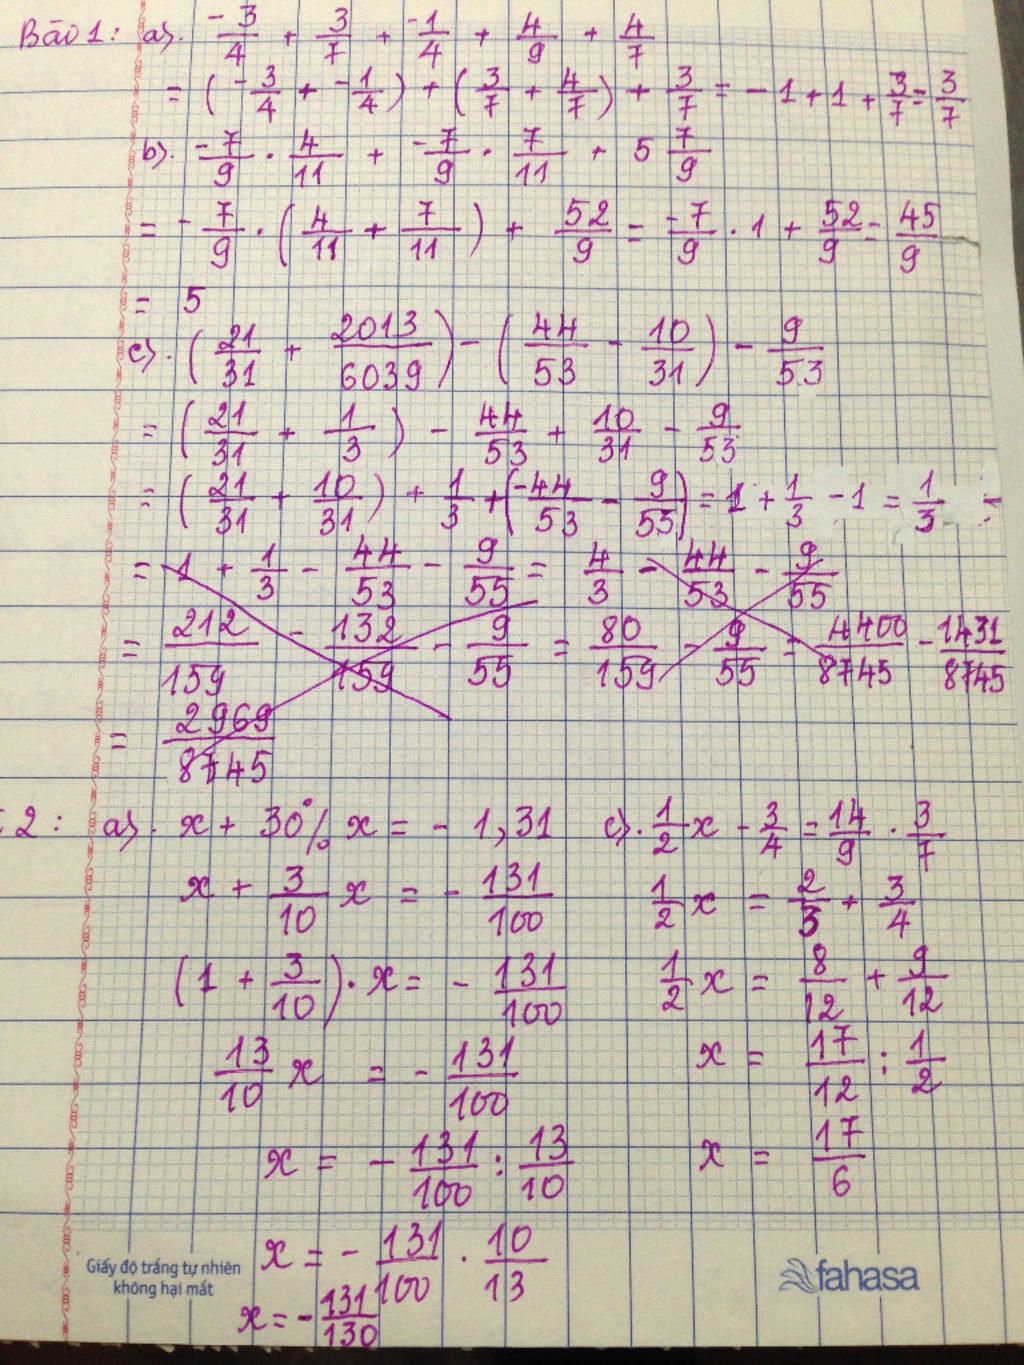 Bài 1: a). -3/4 + 3/7 + -1/4 + 4/9 + 4/7
= (-3/4 + -1/4) + (3/7 + 4/7) + 3/7 = -1 + 1 + 3/7 = 3/7
b). -7/9 . 4/11 + -7/9 . 7/11 + 5 7/9
= -7/9 . (4/11 + 7/11) + 52/9 = -7/9 . 1 + 52/9 = 45/9
= 5
c). (21/31 + 2013/6039) - (44/53 - 10/31) - 9/53
= (21/31 + 1/3) - 44/53 + 10/31 - 9/53
= (21/31 + 10/31) + 1/3 + (-44/53 - 9/53) = 1 + 1/3 - 1 = 1/3
= 1 + 1/3 - 44/53 - 9/55 = 4/3 - 44/53 - 9/55
= 212/159 - 132/159 - 9/55 = 80/159 - 9/55 = 4400/8745 - 1431/8745
= 2969/8745
2: a). x + 30% x = - 1,31
x + 3/10 x = - 131/100
(1 + 3/10) . x = - 131/100
13/10 x = - 131/100
x = - 131/100 : 13/10
x = - 131/100 . 10/13
x = - 131/130
c). 1/2 x - 3/4 = 14/9 . 3/7
1/2 x = 2/3 + 3/4
1/2 x = 8/12 + 9/12
x = 17/12 : 1/2
x = 17/6
Giấy độ trắng tự nhiên
không hại mắt
fahasa